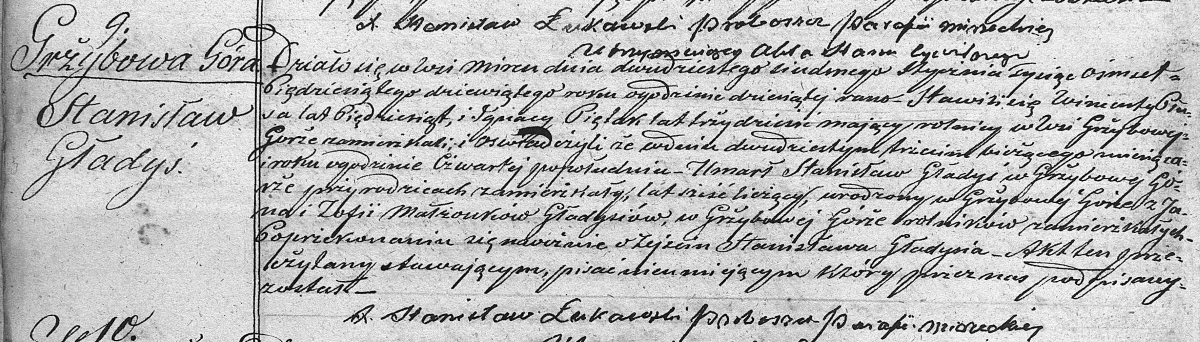 X. Stanisław Łukawski Proboszcz Parafii mireckiej
Utrzymujący Akta Stanu Cywilnego
9.
Grzybowa Góra
Stanisław
Gładyś.
Działo się w Wsi Mircu dnia dwudziestego siudmego Stycznia tysiąc ośmset-
piędziesiątego dziewiątego roku o godzinie dziesiątej rano- Stawili się Wincenty
sa lat pięćdziesiąt, i Ignacy Piętak lat trzydzieści mający, rolnicy w Wsi Grzybowej-
Górze zamieszkali, i oswiadczyli że w dniu dwudziestym trzecim bieżącego miesiąca
i roku o godzinie Czwartej popołudniu- Umarł Stanisław Gładys w Grzybowej Gó-
rze przy rodzicach zamieszkały, lat sześć liczący, urodzony w Grzybowej Górze z Ja-
na i Zofii Małżonków Gładysiów, w Grzybowej Górze rolników zamieszkałych-
Po przekonaniu się naocznie o zejściu Stanisława Gładysia- Akt ten prze-
czytany stawającym, pisać nieumiejącym który przez nas podpisany-
został-
X. Stanisław Łukawski Proboszcz Parafii mireckiej
No 10.